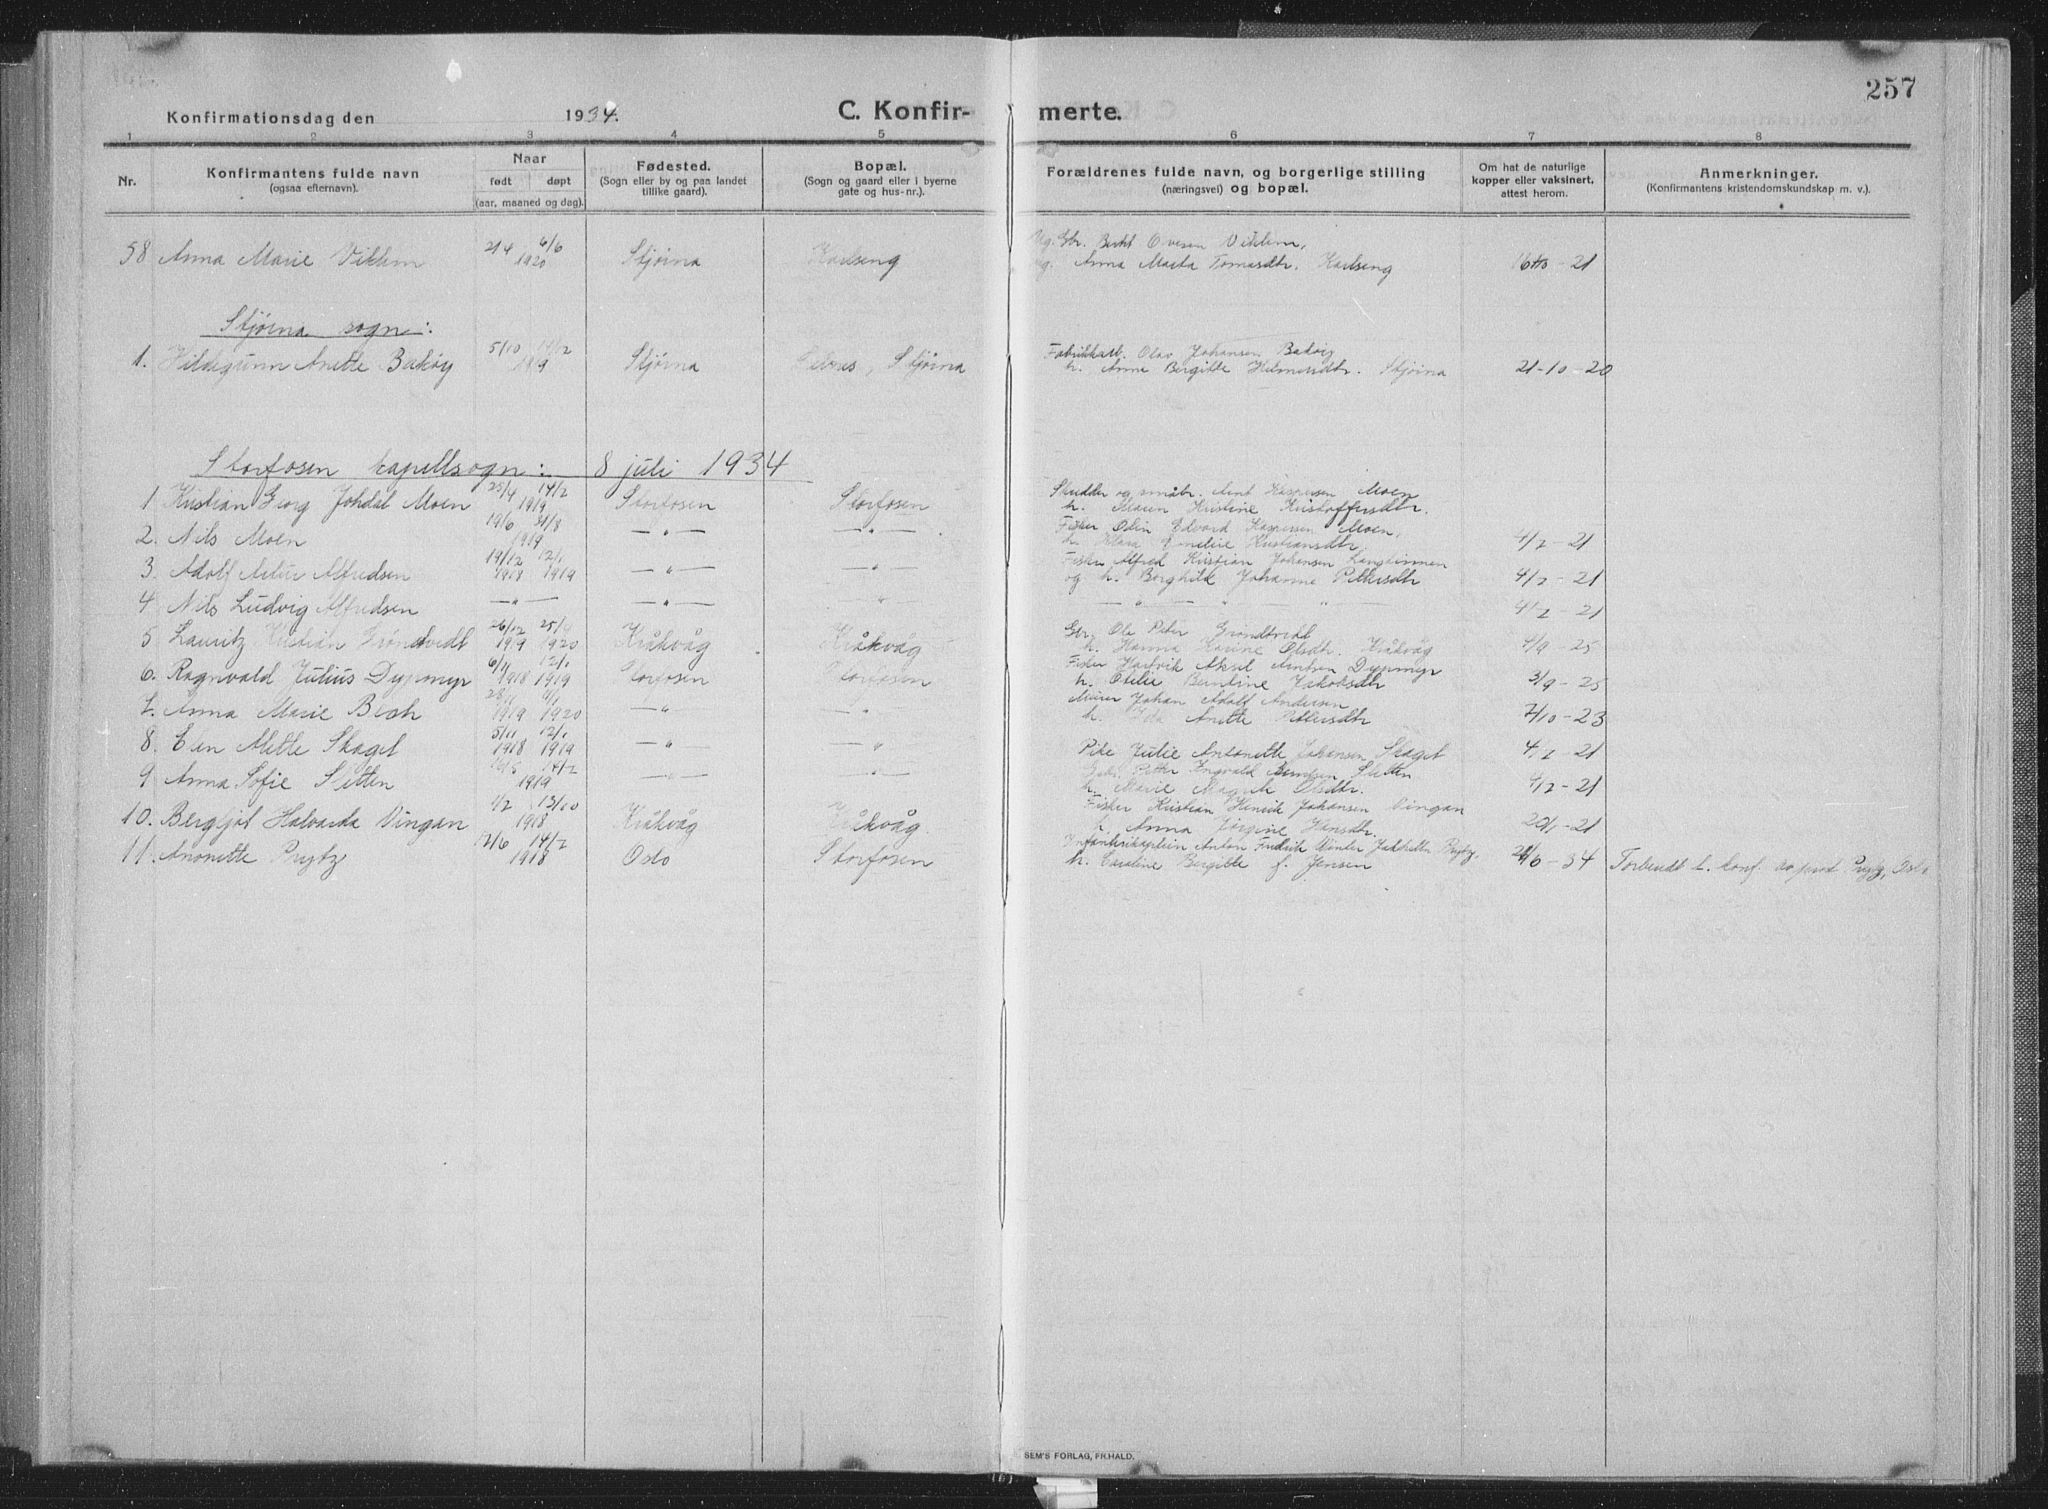 257
Konfirmationsdag den 1934.
C. Konfirmerte.
1 2 3 4 5 6 7 8
Nr.
Konfirmantens fulde navn
(ogsaa efternavn).
Naar
født døpt
(aar, maaned og dag).
Fødested.
(Sogn eller by og paa landet
tillike gaard).
Bopæl.
(Sogn og gaard eller i byerne
gate og hus-nr.).
Forældrenes fulde navn, og borgerlige stilling
(næringsvei) og bopæl.
Om hat de naturlige
kopper eller vaksinert,
attest herom.
Anmerkninger.
(Konfirmantens kristendomskundskap m. v.).
58 Anna Marie Viklem 21/4 6/6 1920 Stjørna Karlseng
Gbr. Berht Ovesen Viklem,
Anna Marta Tomasdtr. Karlseng - 21
Stjørna sogn:
1. Hildegunn Anette Badvig 5/10 1919 Stjørna Stjørna
Fabrikkarb. Olav Johansen Badvig
h. Anne Bergitte Hilmersdtr. Stjørna 21-10-20
Storfosen kapellsogn: 8 juli 1934
1 Kristian Georg Johdal Moen 25/4 14/2 1919 Storfosen Storfosen
og småbr. Arnt Kaspersen Moen
h. Maren Kristine Kristoffersdtr.
2. Nils Moen 19/6 31/8 1919 —„— —„—
Fisker Odin Edvard Kaspersen Moen,
h. Klara Emelie Kristiansdtr 4/2-21
3. Adolf Artur Alfredsen 19/12 1918 12/1 1919 —„— —„—
Fisker Alfred Kristian Johansen
og h. Borghild Johanne Pettersdtr 4/2-21
4. Nils Ludvig Alfredsen —„— —„— —„— „
—„— „ — „ 4/2-21
5 Lauritz Kristian Grøndtvedt 26/12 1919 25/4 1920 Kråkvåg Kråkvåg
Gbr. Ole Peter Grøndtvedt
h. Hanna Karine Olsdtr. Kråkvåg 4/9-25
6. Ragnvald Julius Dypmyr 6/11 1918 12/1 1919 Storfosen Storfosen
Fisker Hartvik Aksel Anton Dypmyr
h. Otelie Bentine Jakobsdtr 3/9-25
7. Anna Marie Bech 28/11 1919 4/1 1920 —„— „
Murer Johan Adolf Andersen
h. Ida Anette Pettersdtr 7/10-23
8. Elen Mette Skaget 5/11 1918 12/1 1919 —„— „
Pike Julie Antonette Johansen Skaget 4/2-21
9 Anna Sofie Sletten 14/2 1919 —„— „
Petter Ingvald Sletten
h. Marie Magrete Olsdtr. 4/2-21
10. Bergljot Halvarda Vingan 1/2 13/10 1918 Kråkvåg Kråkvåg
Fisker Kristian Henrik Johansen Vingan
h. Anna Jørgine Hansdtr. 20/1-21
11. Anonette Prytz 12/6 14/2 1918 Oslo Storfosen
Infanterikaptein Anton Fredrik Winter Jakhelln Prytz,
h. Caroline Bergitte f. Jensen /6-34
Forberedt t. konf. av prest Prytz, Oslo
SEM'S FORLAG, FR.HALD.